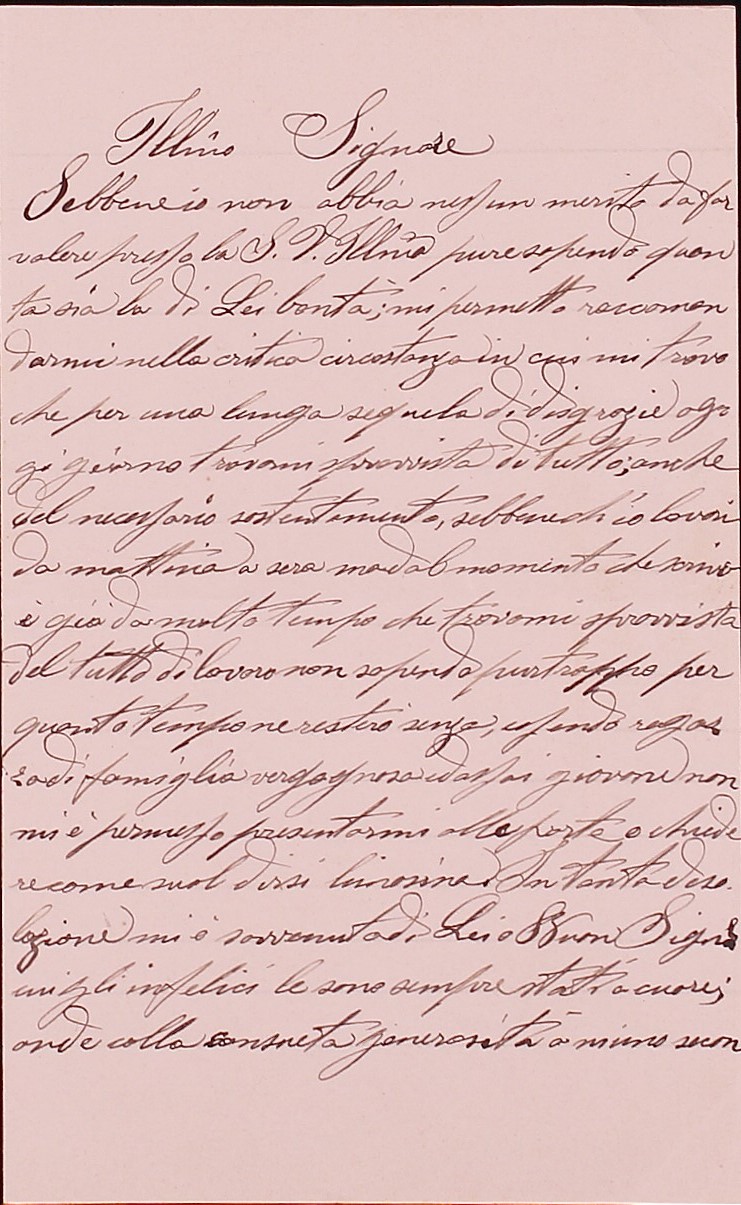 Illmo Signore
Sebbene io non abbia nessun merito da far
valere presso la S. V. Illma pure sapendo quan
ta sia la di Lei bontà; mi permetto raccoman
darmi nella critica circostanza in cui mi trovo
che per una lunga sequela di disgrazie og
gi giorno trovomi sprovvista di tutto; anche
del necessario sostentamento, sebbene ch'io lavori
da mattina a sera ma dal momento che scrivo
è già da molto tempo che trovomi sprovvista
del tutto di lavoro non sapendo purtroppo per
quanto tempo ne resterò senza, essendo ragaz
za di famiglia vergognosa ed assai giovane non
mi è permesso presentarmi alle porte a chiede
re come suol dirsi limosina. In tanta deso
lazione mi è sovvenuta di Lei o Buon Signore
cui gli infelici le sono sempre stati a cuore;
onde colla consueta generosità a niuno secon